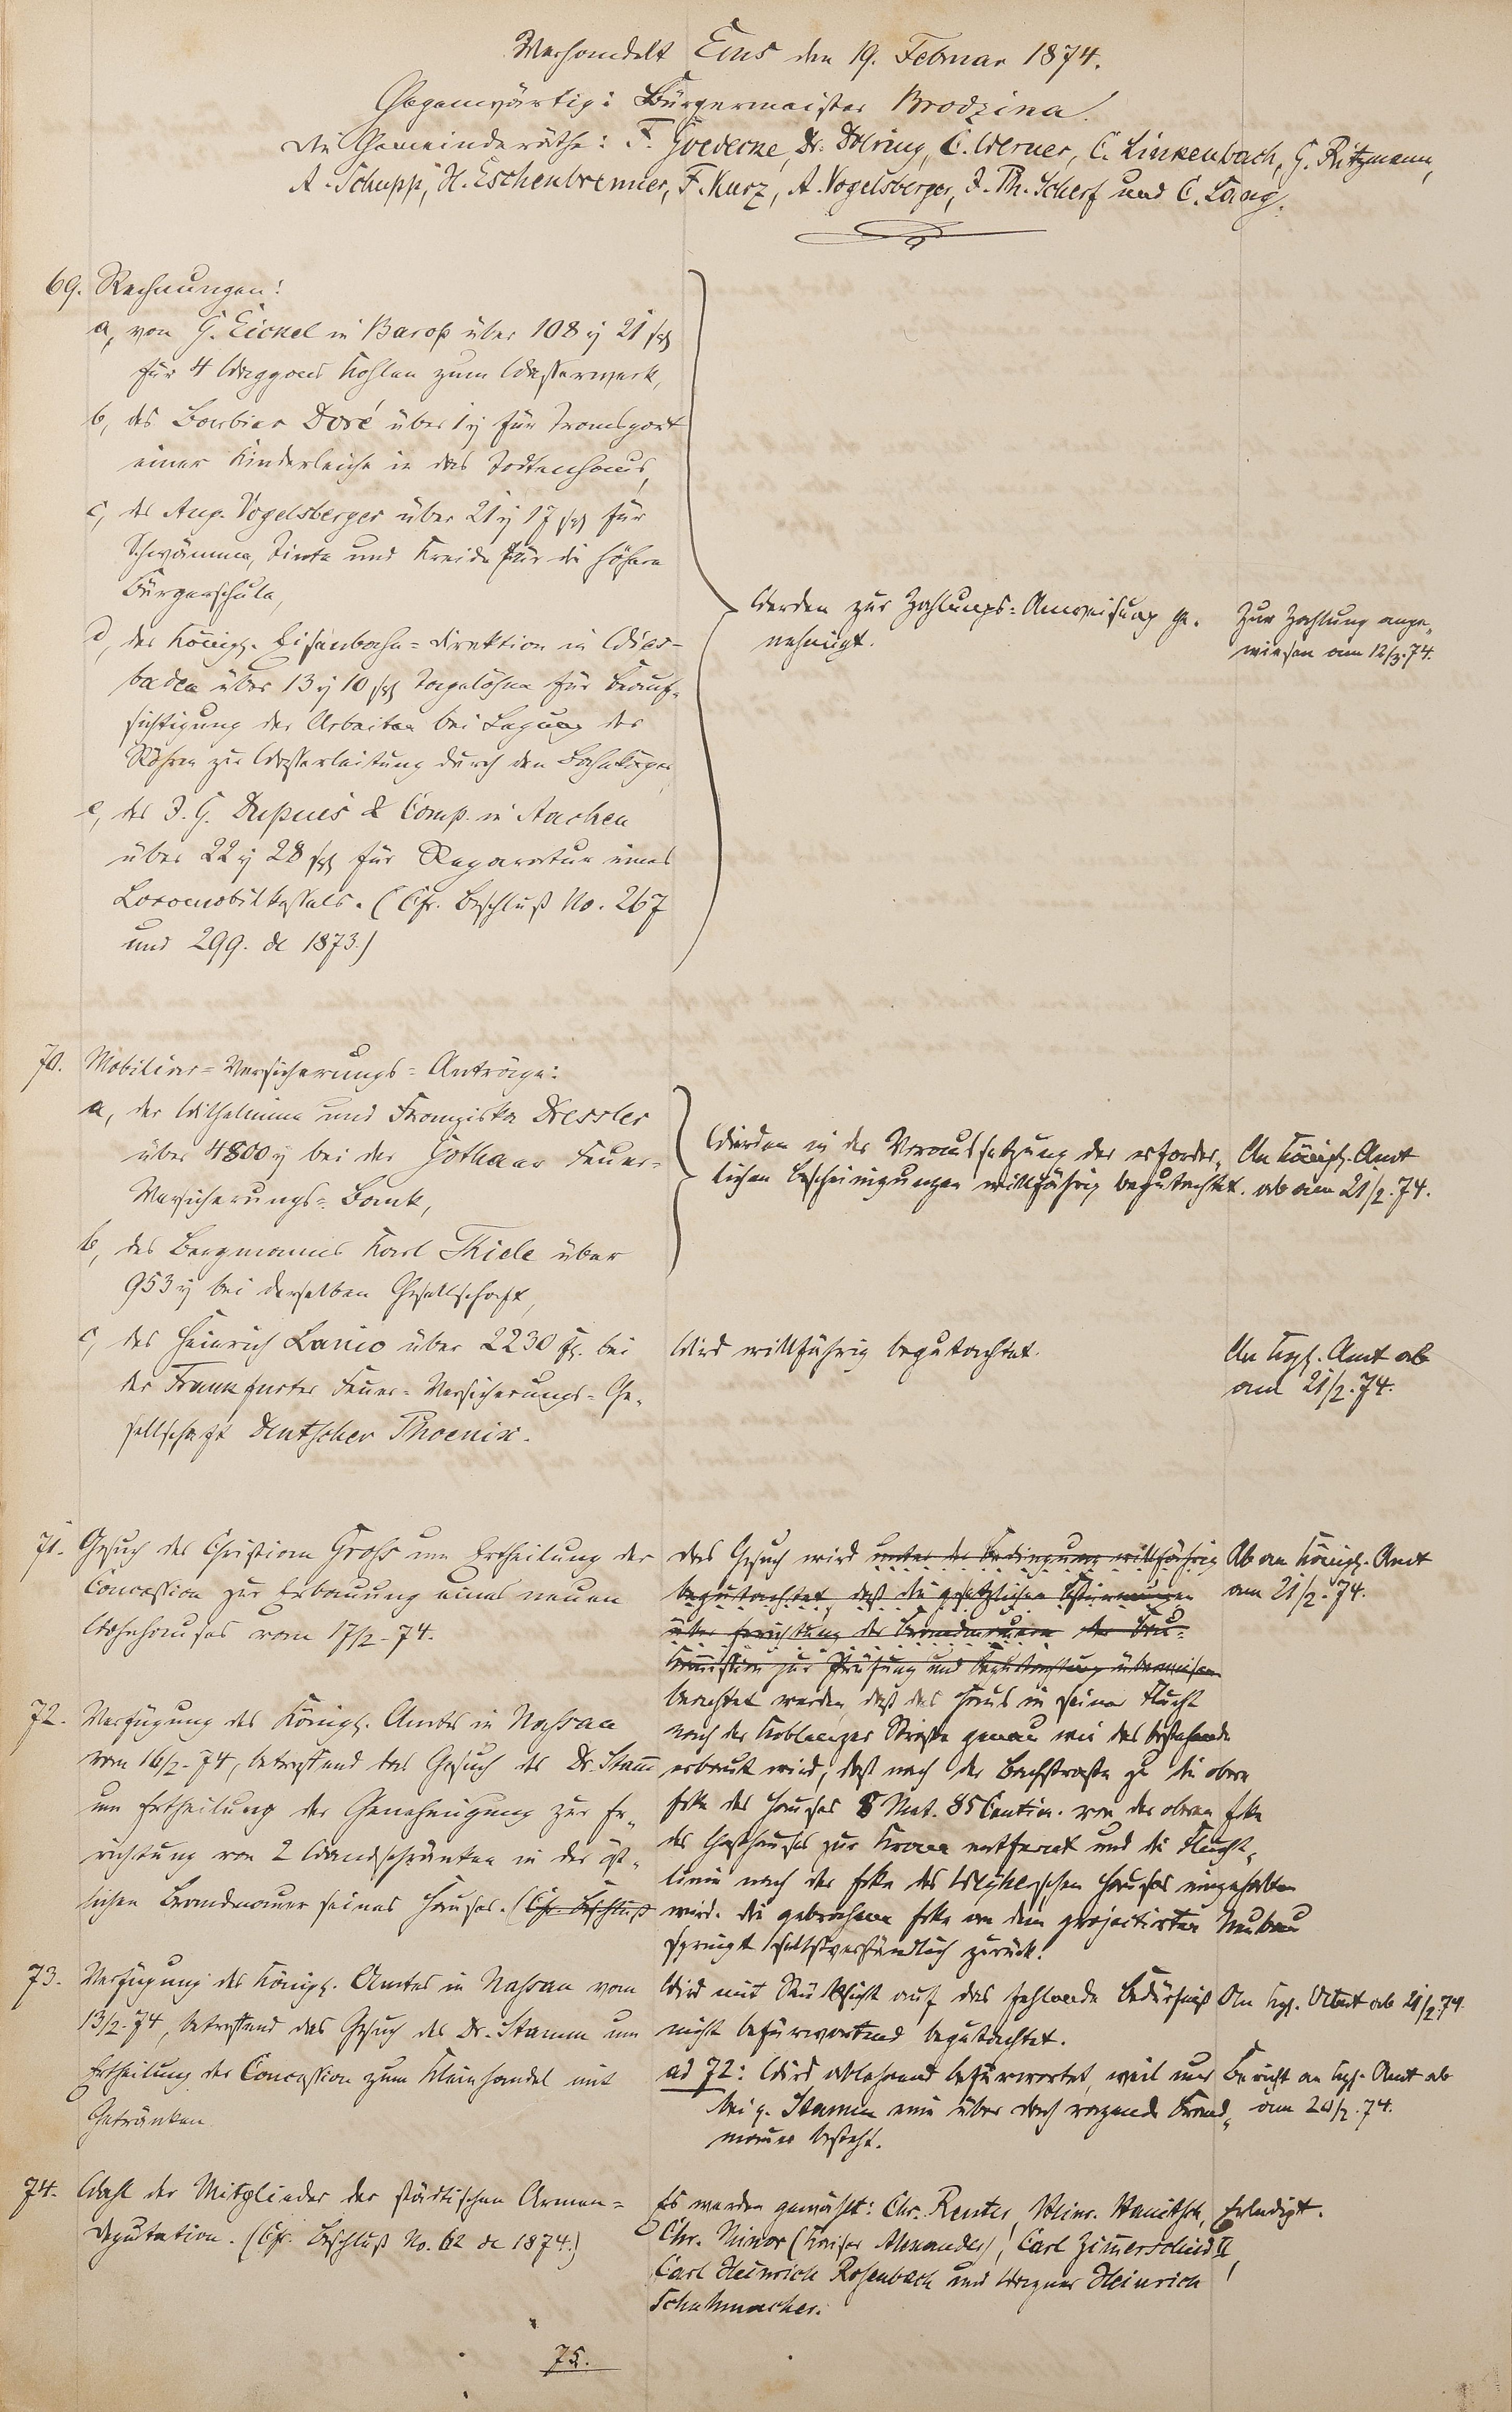 Verhandelt Ems den 19. Februar 1874.
Gegenwärtig: Bürgermeister Brodzina.
Die Gemeinderäthe: F. Goedecke, Dr. Döring, C. Werner, C. Linkenbach, G. Ritzmann,
A. Schupp, H. Eschenbrenner, F. Kurz, A. Vogelsberger, J. Th. Scherf und C. Lang.
69. Rechnungen:
a, von G. Eickel in Barop über 108 rℓ 21 sgr
für 4 Waggons Kohlen zum Wasserwerk,
b, des Barbier Doré über 1 rℓ für Transport
einer Kinderleiche in das Todtenhaus,
c, des Aug. Vogelsberger über 21 rℓ 17 sgr für
Schwämme, Tinte und Kreide für die höhere
Bürgerschule,
d, der Königl. Eisenbahn=Direktion in Wies-
baden über 13 rℓ 10 sgr Tagelöhne für Beauf-
sichtigung der Arbeiten bei Legung der
Röhren zur Wasserleitung durch den Bahnkörper
e, des J. G. Dupuis & Comp. in Aachen
über 22 rℓ 28 sgr für Reparatur eines
Locomobilkessels. (Cfr. Beschluß No. 267
und 299. de 1873.)
Werden zur Zahlungs=Anweisung ge-
nehmigt.
Zur Zahlung ange-
wiesen am 12/3.74.
70. Mobiliar=Versicherungs=Anträge:
a, der Wilhelmine und Franziska Dressler
über 4800 rℓ bei der Gothaer Feuer=
Versicherungs=Bank,
b, des Bergmanns Karl Thiele über
953 rℓ bei derselben Gesellschaft,
Werden in der Voraussetzung der erforder-
lichen Bescheinigungen willfährig begutachtet.
An Königl. Amt
ab am 21/2.74.
c, des Heinrich Lanio über 2230 fl. bei
der Frankfurter Feuer=Versicherungs=Ge-
sellschaft Deutscher Phoenix.
Wird willfährig begutachtet.
An Kgl. Amt ab
am 21/2.74.
71. Gesuch des Christian Groß um Ertheilung der
Concession zur Erbauung eines neuen
Wohnhauses vom 17/2.74.
Das Gesuch wird unter der Bedingung willfährig
begutachtet, daß die gesetzlichen Bestimmungen
über Errichtung der Brandmauern der Bau-
Commission zur Prüfung und Begutachtung überwiesen
beachtet werden, daß das Haus in seiner Flucht
nach der Koblenzer Straße genau wie das bestehende
erbaut wird, daß nach der Bachstraße zu die obere
Ecke des Hauses 8 Met. 85 Centim. von der oberen Ecke
des Gasthauses zur Krone entfernt und die Flucht-
linie nach der Ecke des Hauses eingehalten
wird. Die gebrochene Ecke an dem projectirten Neubau
springt selbstverständlich zurück.
Ab an Königl. Amt
am 21/2.74.
72. Verfügung des Königl. Amtes in Nassau
vom 16/2.74, betreffend das Gesuch des Dr. Stamm
um Ertheilung der Genehmigung zur Er-
richtung von 2 Wandschränken in der öst-
lichen Brandmauer seines Hauses. (Cfr. Beschluß
73. Verfügung des Königl. Amtes in Nassau vom
13/2.74, betreffend das Gesuch des Dr. Stamm um
Ertheilung der Concession zum Kleinhandel mit
Getränken.
Wird mit Rücksicht auf das fehlende Bedürfniß
nicht befürwortend begutachtet.
An Kgl. Amt ab 21/2.74.
ad 72: Wird ablehnend befürwortet, weil nur
bei p. Stamm eine über Dach ragende Brand-
mauer besteht.
Bericht an Kgl. Amt ab
am 20/2.74.
74. Wahl der Mitglieder der städtischen Armen=
Deputation. (Cfr. Beschluß No. 62 de 1874.)
Es werden gewählt: Chr. Reuter, Heinr. Hanitsch,
Chr. Minor (Kaiser Alexander), Carl Zimmerschied II,
Carl Heinrich Rosenbach und Wagner Heinrich
Schuhmacher.
Erledigt.
75.